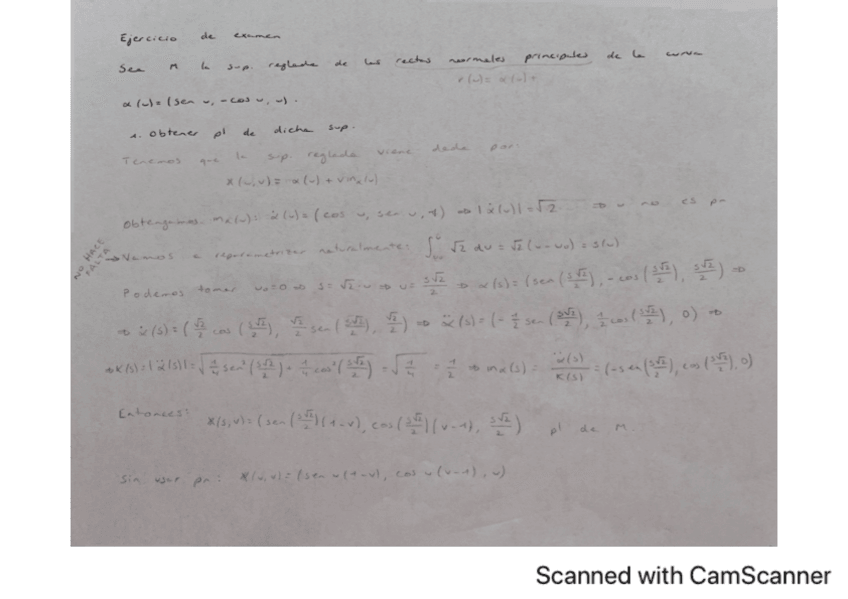 Ejercicio de examen
Sea M la sup. reglada de las rectas normales principales de la curva
r(u)= α(u)+
α(u)=(sen u, -cos u, u).
1. Obtener pl de dicha sup.
Tenemos que la sup. reglada viene dada por:
X(u,v)= α(u)+ v nα(u)
Obtengamos nα(u): α̇(u)=(cos u, sen u, 1) ⇒ |α̇(u)|=√2 ⇒ u no es pn
NO HACE FALTA → Vamos a reparametrizar naturalmente: ∫_{u₀}^{u} √2 du = √2(u-u₀) = s(u)
Podemos tomar u₀=0 ⇒ s=√2·u ⇒ u= s√2/2 ⇒ α(s)=(sen(s√2/2), -cos(s√2/2), s√2/2) ⇒
⇒ α̇(s)=(√2/2 cos(s√2/2), √2/2 sen(s√2/2), √2/2) ⇒ α̈(s)=(-1/2 sen(s√2/2), 1/2 cos(s√2/2), 0) ⇒
⇒ K(s)=|α̈(s)|=√(1/4 sen²(s√2/2)+ 1/4 cos²(s√2/2)) = √(1/4) = 1/2 ⇒ nα(s)= α̈(s)/K(s) = (-sen(s√2/2), cos(s√2/2), 0)
Entonces: X(s,v)=(sen(s√2/2)(1-v), cos(s√2/2)(v-1), s√2/2) pl de M.
Sin usar pn: X(u,v)=(sen u(1-v), cos u(v-1), u)
Scanned with CamScanner